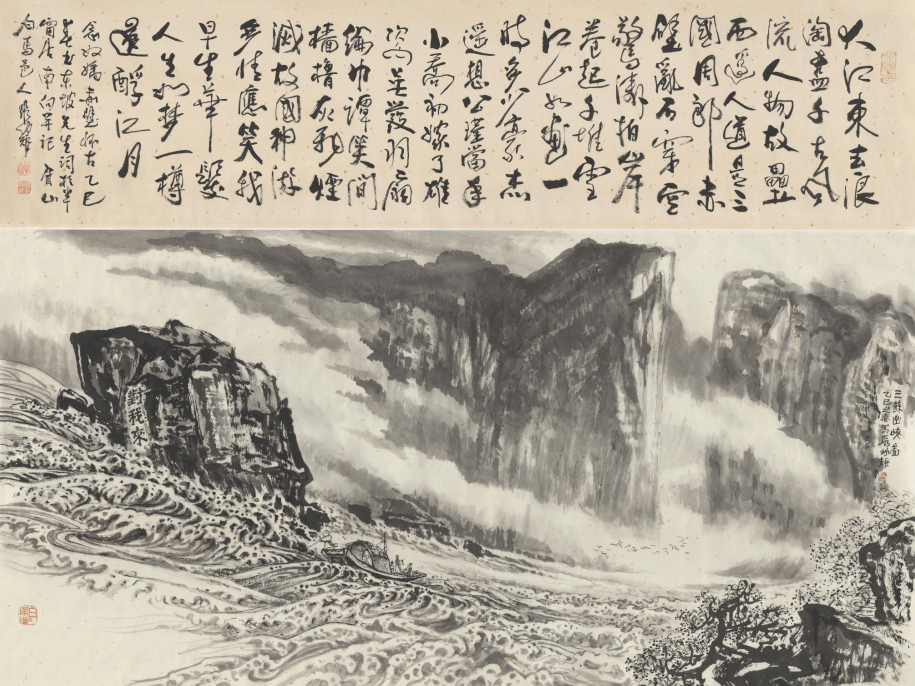 大江東去浪
淘盡千古風
流人物故壘
西邊人道是三
國周郎赤
壁亂石穿空
驚濤拍岸
卷起千堆雪
江山如畫一
時多少豪杰
遥想公瑾當年
小喬初嫁了雄
姿英發羽扇
綸巾譚笑間
檣櫓灰飛煙
滅故國神游
多情應笑我
早生華髮
人生如夢一樽
還酹江月
念奴嬌 赤壁懷古 乙巳
春書東坡先生詞於
居南向軒記
白馬邑人
對我來
三蘇出峽圖
乙巳春寫